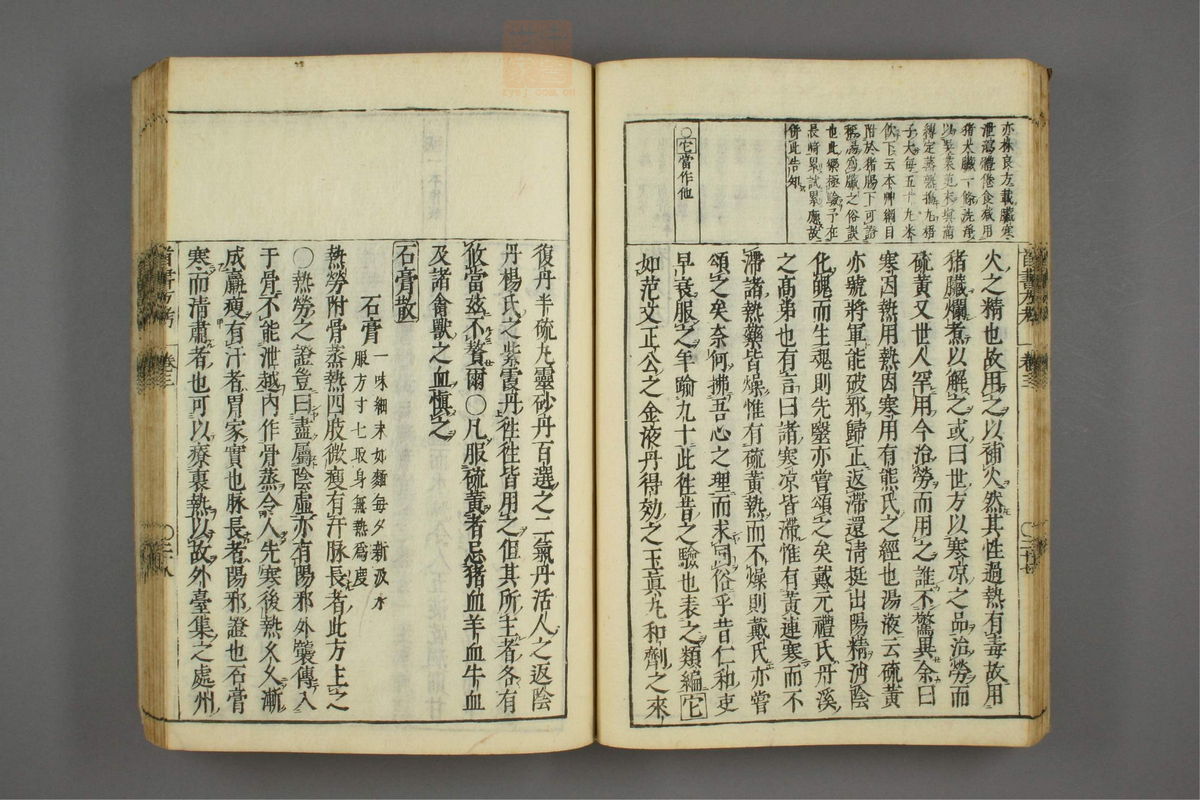 亦株良方載臟寒
泄瀉體倦食減用
猪大臟一條洗淨
以吴茱萸末與滿
縛定蒸熟搗丸梧
子大每五十丸米
飲下云本艸綱目
附於猪腸下可證
稱腸為臟之俗説
也此藥極驗予在
長崎累試累應故
併此告知
〇它當作他
火之精也故用之以補火然其性過熱有毒故用
猪臟爛煮以解之或曰世方以寒凉之品治勞而
硫黃又世人罕用今治勞而用之誰不驚異余曰
寒因熱用熱因寒用有熊氏之經也湯液云硫黃
亦號將軍能破邪歸正返滯還清挺出陽精消陰
化魄而生魂則先毉亦嘗頌之矣戴元禮氏丹溪
之高弟也有言曰諸寒凉皆滯惟有黃連寒而不
滯諸熱藥皆燥惟有硫黃熱而不燥則戴氏亦嘗
頌之矣奈何拂吾心之理而求同俗乎昔仁和吏
早衰服之年踰九十此徃昔之驗也表之類編它
如范文正公之金液丹得効之玉眞丸和劑之來
復丹半硫丸靈砂丹百選之二氣丹活人之返陰
丹楊氏之紫霞丹徃徃皆用之但其所主者各有
攸當茲不贅爾〇凡服硫黃者忌猪血羊血牛血
及諸禽獸之血愼之
石膏散
石膏一味細末如麵每夕新汲水
服方寸七取身無熱爲度
熱勞附骨蒸熱四肢微瘦有汗脉長者此方主之
〇熱勞之證豈曰盡屬陰虛亦有陽邪外襲傳入
于骨不能泄越内作骨蒸令人先寒後熱久久漸
成羸瘦有汗者胃家實也脉長者陽邪證也石膏
寒而清肅者也可以療裏熱以故外臺集之處州
醫書方考
卷三
〇三十七
醫書方考
卷三
〇三十八